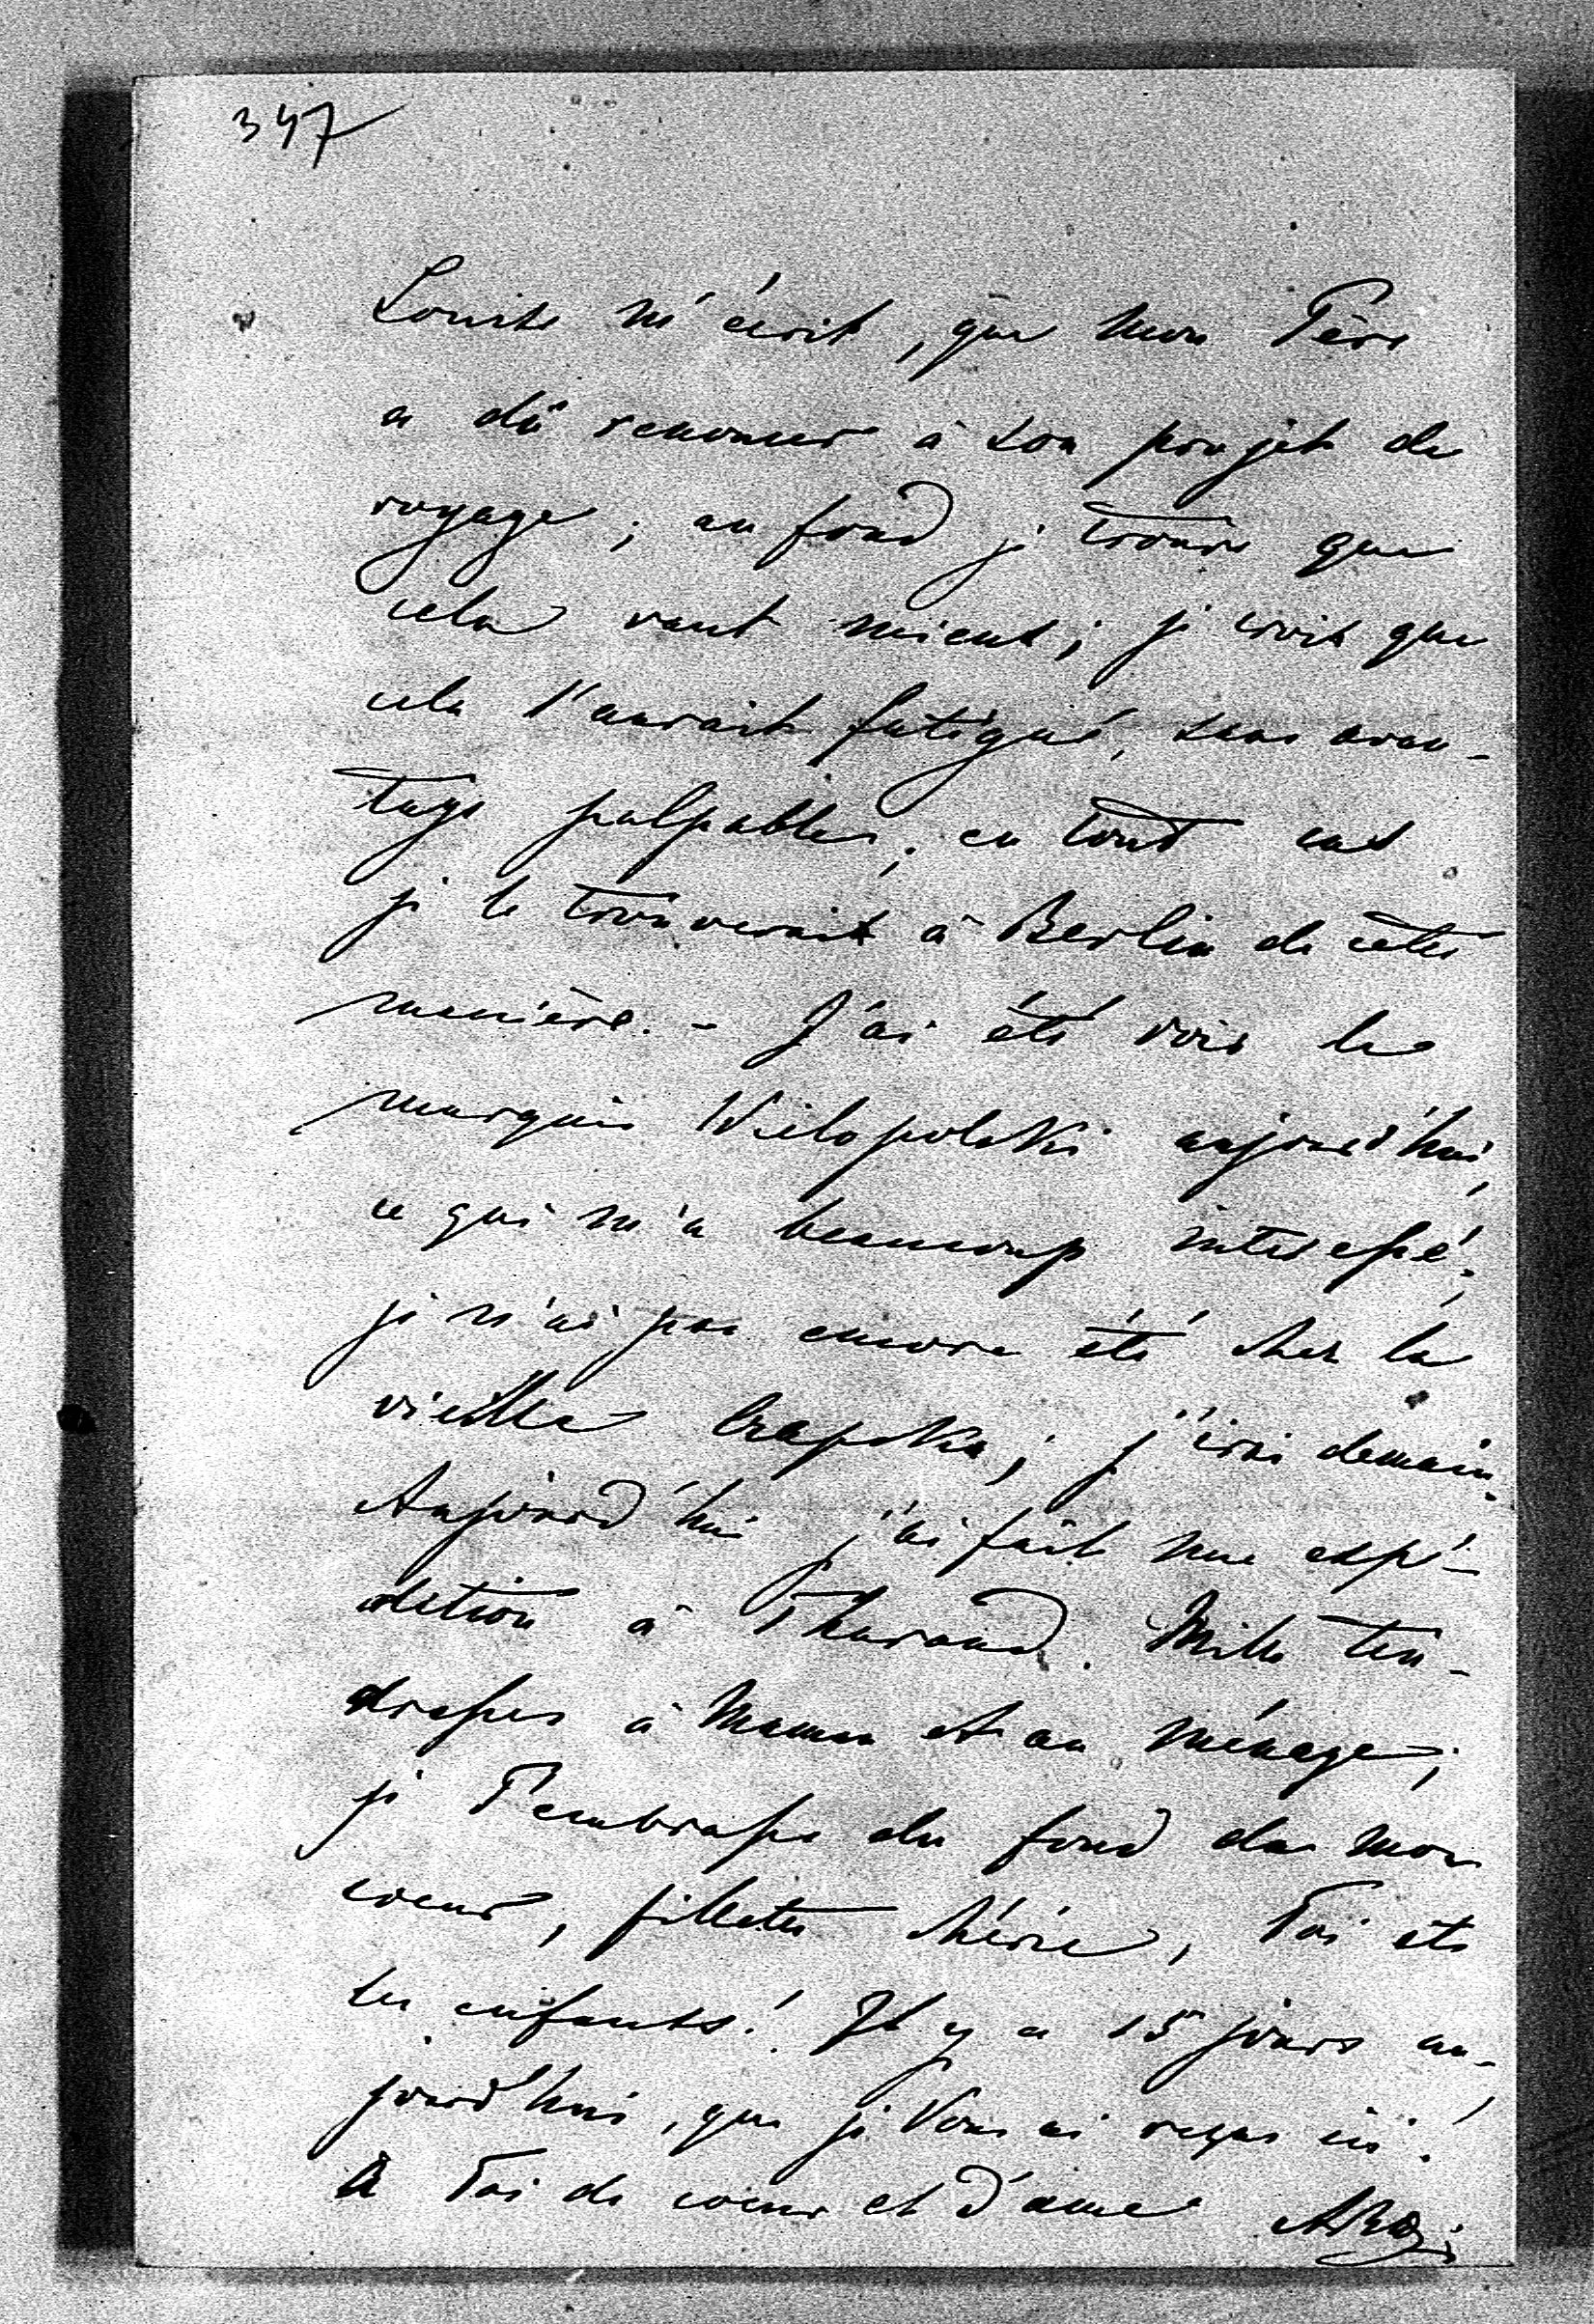 347
Louise m'écrit, que mon Père
a dû renoncer à son projet de
voyage; au fond je trouve que
cela vaut mieux; je crois que
cela l'aurait fatigué, sans avan-
tage palpable; en tout cas
je le trouverais à Berlin de cette
manière. - J'ai été voir le
marquis Wielopolski aujourd'hui,
ce qui m'a beaucoup interessé;
je n'ai pas encore été chez la
vieille; j'irai demain.
Aujourd'hui j'ai fait une expé-
dition à Tharand. Mille ten-
dresses à Maman et au ménage;
je T'embrasse du fond de mon
coeur, fillette chérie, Toi et
les enfants! Il y a 15 jours au-
jourd'hui, que je Vous ai reçus ici!
A Toi de coeur et d'ame